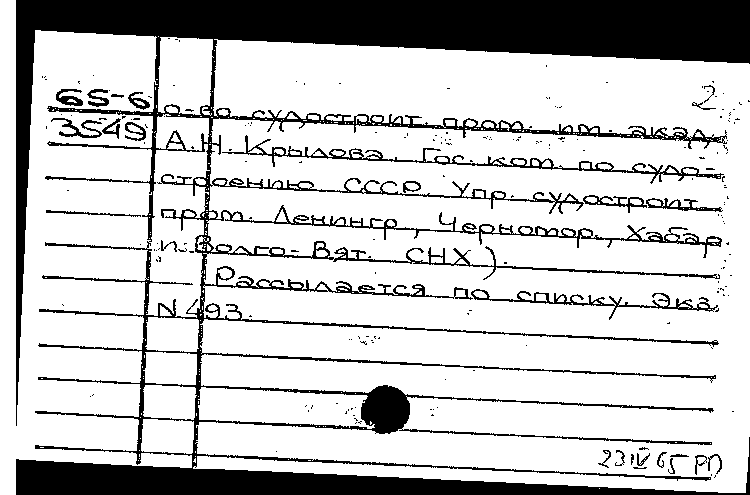 2
65-6 о-во судостроит. пром. им. акад.
3549 А.Н. Крылова. Гос. ком. по судо-
строению СССР. Упр. судостроит.
пром. Ленингр., Черномор., Хабар.
и Волго-Вят. СНХ).
Рассылается по списку. Экз.
N 493.
23 IV 65 РП